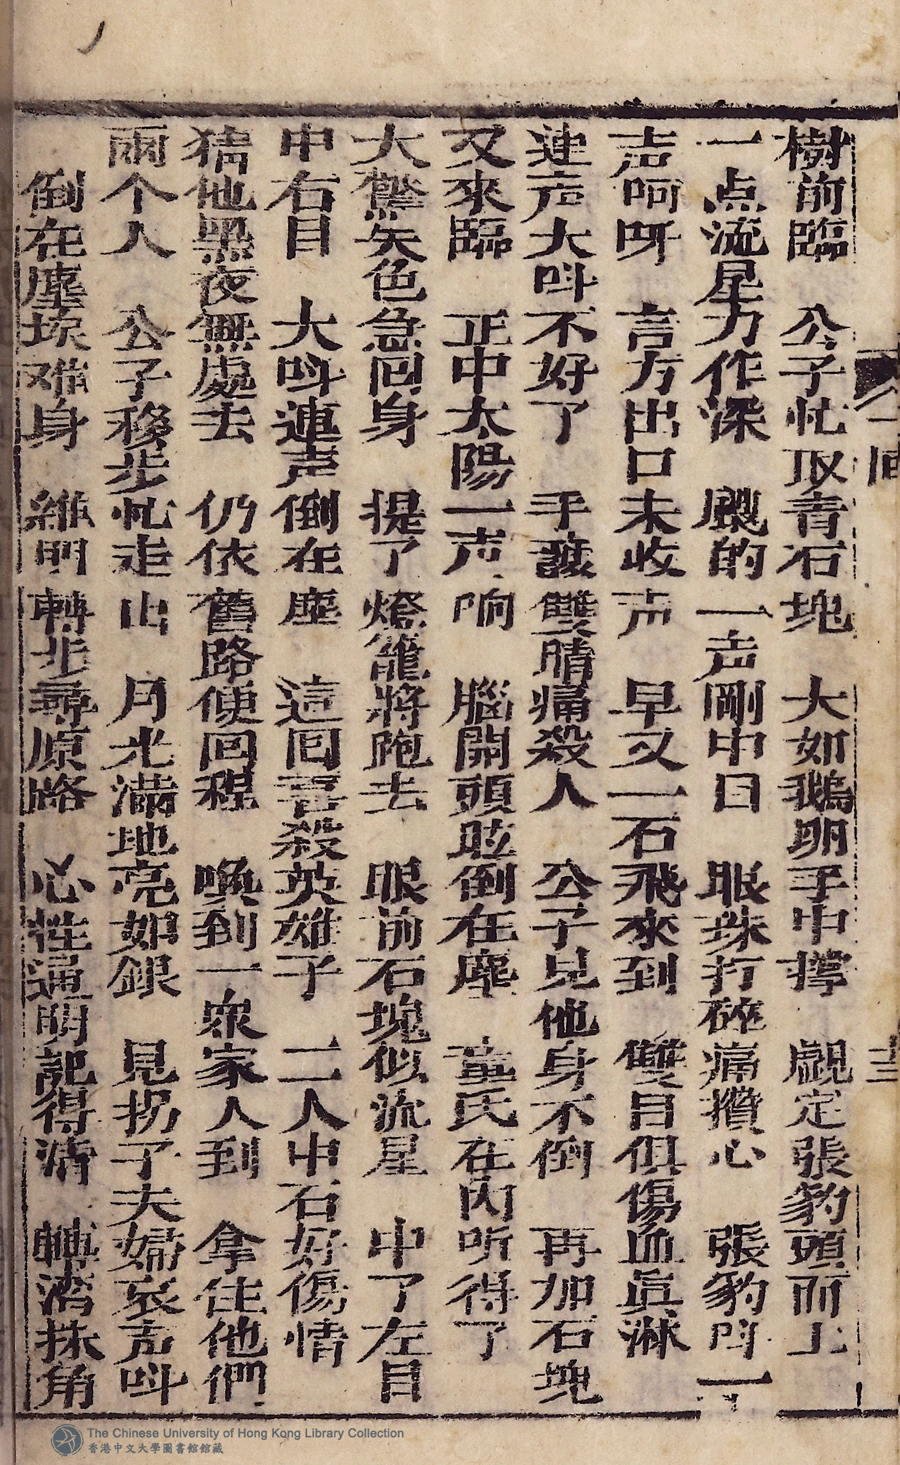 樹前臨　公子忙取青石塊　大如鵝卵手中撑　覷定張豹頭而上
一点流星力作深　颼的一声剛中目　眼珠打碎痛攢心　張豹呌一
声呵呀　言方出口未收声　早又一石飛來到　雙目俱傷血眞淋
連声大呌不好了　手護雙睛痛殺人　公子見他身不倒　再加石塊
又來臨　正中太陽一声响　腦開頭眩倒在塵　童氏在內听得了
大驚失色急回身　提了燈籠將跑去　眼前石塊似流星　中了左目
中右目　大呌連声倒在塵　這回喜殺英雄子　二人中石好傷情
猜他黑夜無處去　仍依舊路便回程　喚到一衆家人到　拿住他們
兩个人　公子移步忙走出　月光滿地亮如銀　見拐了夫婦哀声呌
倒在塵埃难身　維明轉步尋原路　心性通明記得清　轉灣抹角
回
十三
The Chinese University of Hong Kong Library Collection
香港中文大學圖書館館藏